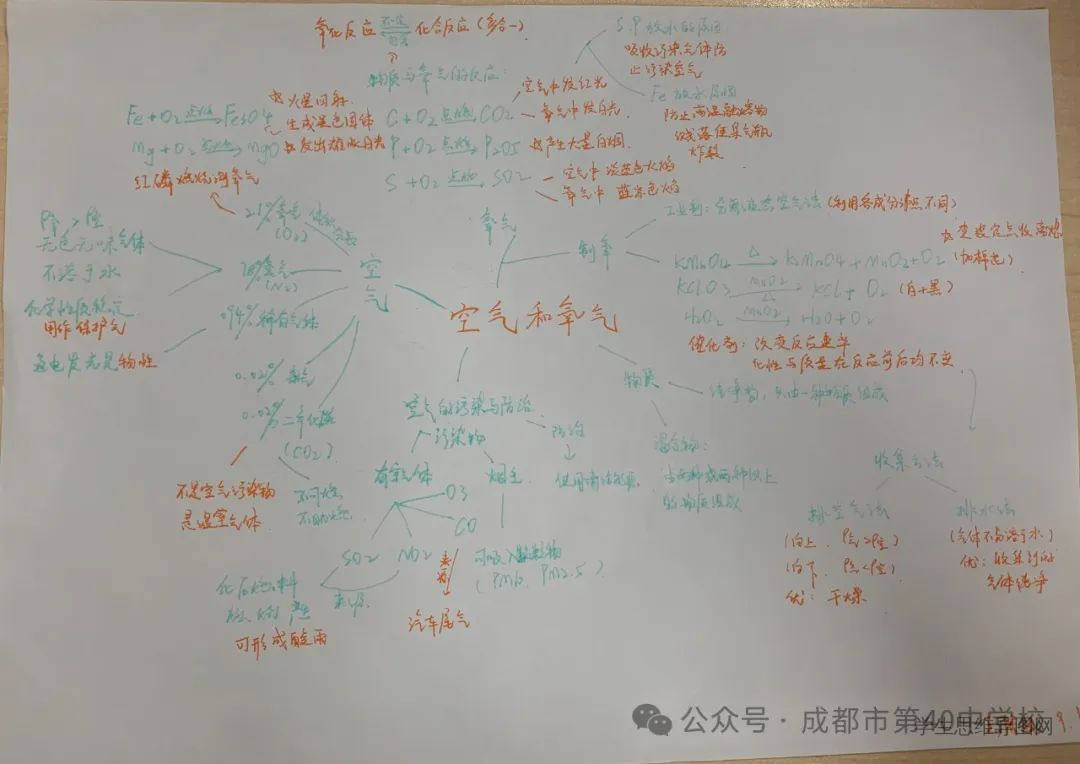 氧化反应 不一定 化合反应 (多合一)
物质与氧气的反应:
S.P 放水的原因
吸收污染气体防
止污染空气
Fe 放水原因
防止高温融溶物
溅落使集气瓶
炸裂
Fe + O2 点燃 Fe3O4
火星四射
生成黑色固体
Mg + O2 点燃 MgO
发出耀眼白光
C + O2 点燃 CO2
空气中发红光
氧气中发白光
P + O2 点燃 P2O5
产生大量白烟
S + O2 点燃 SO2
空气中 淡蓝色火焰
氧气中 蓝紫色焰
红磷燃烧测氧气
21% 氧气
(O2)
78% 氮气
(N2)
无色无味气体
不溶于水
化学性质稳定
用作保护气
0.94% 稀有气体
通电发光是物性
0.02%
0.02% 二氧化碳
(CO2)
不是空气污染物
是温室气体
不可燃
不助燃
空气
氧气
制氧
空气和氧气
工业制: 分离液态空气法 (利用各成分沸点不同)
KMnO4 △ K2MnO4 + MnO2 + O2
(加棉花)
KClO3 MnO2 △ KCl + O2 (白+黑)
H2O2 MnO2 H2O + O2
催化剂: 改变反应速率
化性与质量在反应前后均不变
物质
纯净物, 只由一种物质组成
混合物:
由两种或两种以上
的物质组成
空气的污染与防治
污染物
防治
使用清洁能源
有害气体
烟尘
O3
CO
SO2
NO2
可吸入颗粒物
(PM10, PM2.5)
来源
化石燃料
可形成酸雨
汽车尾气
收集方法
排空气法
(向上, ρ气>ρ空)
(向下, ρ气<ρ空)
优: 干燥
排水法
(气体不易溶于水)
优: 收集到的
气体纯净
公众号 · 成都市第40中学校
学生思维导图网